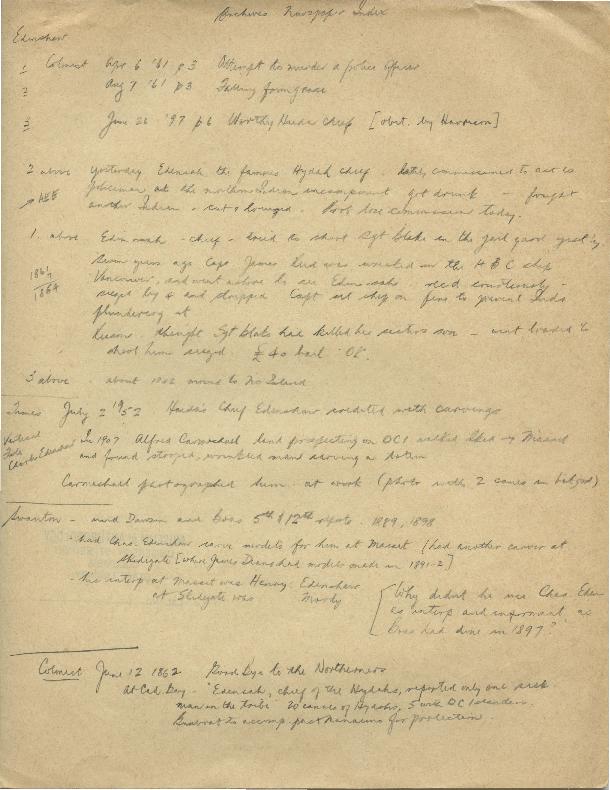 Archives Newspaper Index
Edenshaw
1 Colonist Apr 6 '61 p3 Attempt to murder a police officer
2 Aug 7 '61 p3 Falling from grace
3 June 26 '97 p6 Worthy Haida Chief [obit. by Harrison]
2 above Yesterday Edensah the famous Hydah chief. lately commissioned to act as
policeman at the northern Indian encampment got drunk - fought
another Indian - cut & bruised. Took his commission today.
1. above - chief - tried to shoot Sgt Blake in the jail yard yest'y
Seven years ago Capt James was wrecked on the HBC ship
Vancouver, and went ashore to see Edensah. rec'd courteously -
1861
1854
seized by & and stripped Capt set ship on fire to prevent Inds
plundering it
Reason. thought Sgt Blake had killed his sister's son - went loaded to
shoot him seized £40 bail "OK".
3 above. about 1882 moved to No Island
Times July 2 1952 Haida's Chief Edenshaw credited with carvings
In 1907 Alfred Carmichael land prospecting on QCI walked → Masset
Charles Edenshaw
and found stooped, wrinkled man carving a totem
Carmichael photographed him at work (photo with 2 canes in background)
Swanton - used Dawson and Boas 5th & 12th reports. 1889, 1898
- had Chas. Edenshaw carve models for him at Masset (had another carver at
Skidegate [where James Deans had models made in 1891-2]
- his interp at Masset was Henry Edenshaw
at Skidegate was Moody
[Why didn't he use Chas. Eden
as interp and informant, as
Boas had done in 1897?
Colonist June 12 1862 Good bye to the Northerners
At Cad. Bay. "Edensah, chief of the Hydahs, reported only one sick
man in the tribe" 20 canoes of Hydahs, 5 with QC Islanders.
Gunboat to accomp. past Nanaimo for protection.